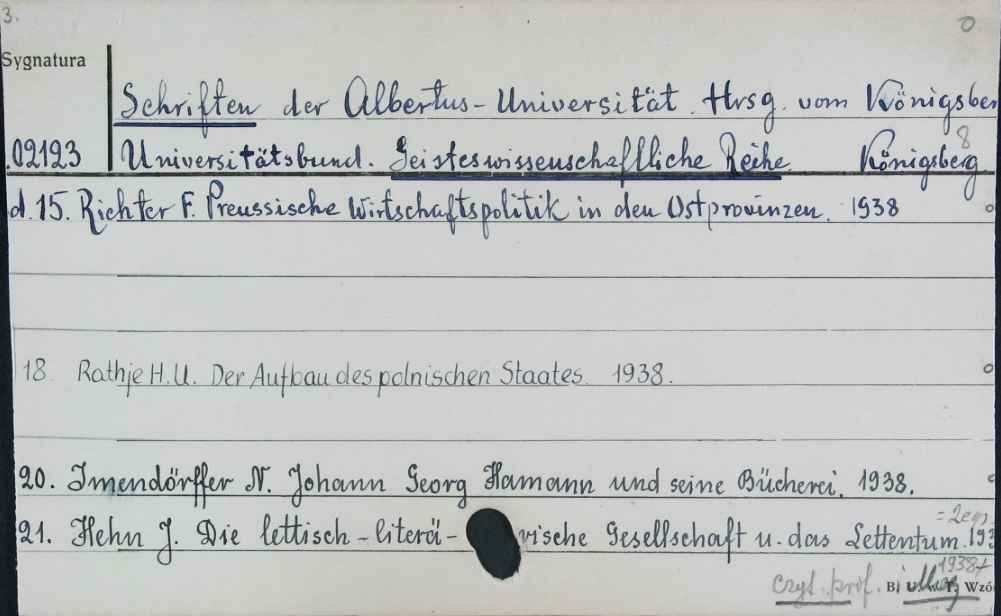 3.
0
Sygnatura
Schriften der Albertus-Universität. Hrsg. vom Königsber
8
.02123 Universitätsbund. Geisteswissenschaftliche Reihe. Königsberg
d.15. Richter F. Preussische Wirtschaftspolitik in den Ostprovinzen. 1938
18. Rathje H.U. Der Aufbau des polnischen Staates. 1938.
20. Imendörffer N. Johann Georg Hamann und seine Bücherei. 1938.
= 2egz.
21. Hehn J. Die lettisch-literä- rische Gesellschaft u. das Lettentum. 193
1938+
czyt. prof. Wzó